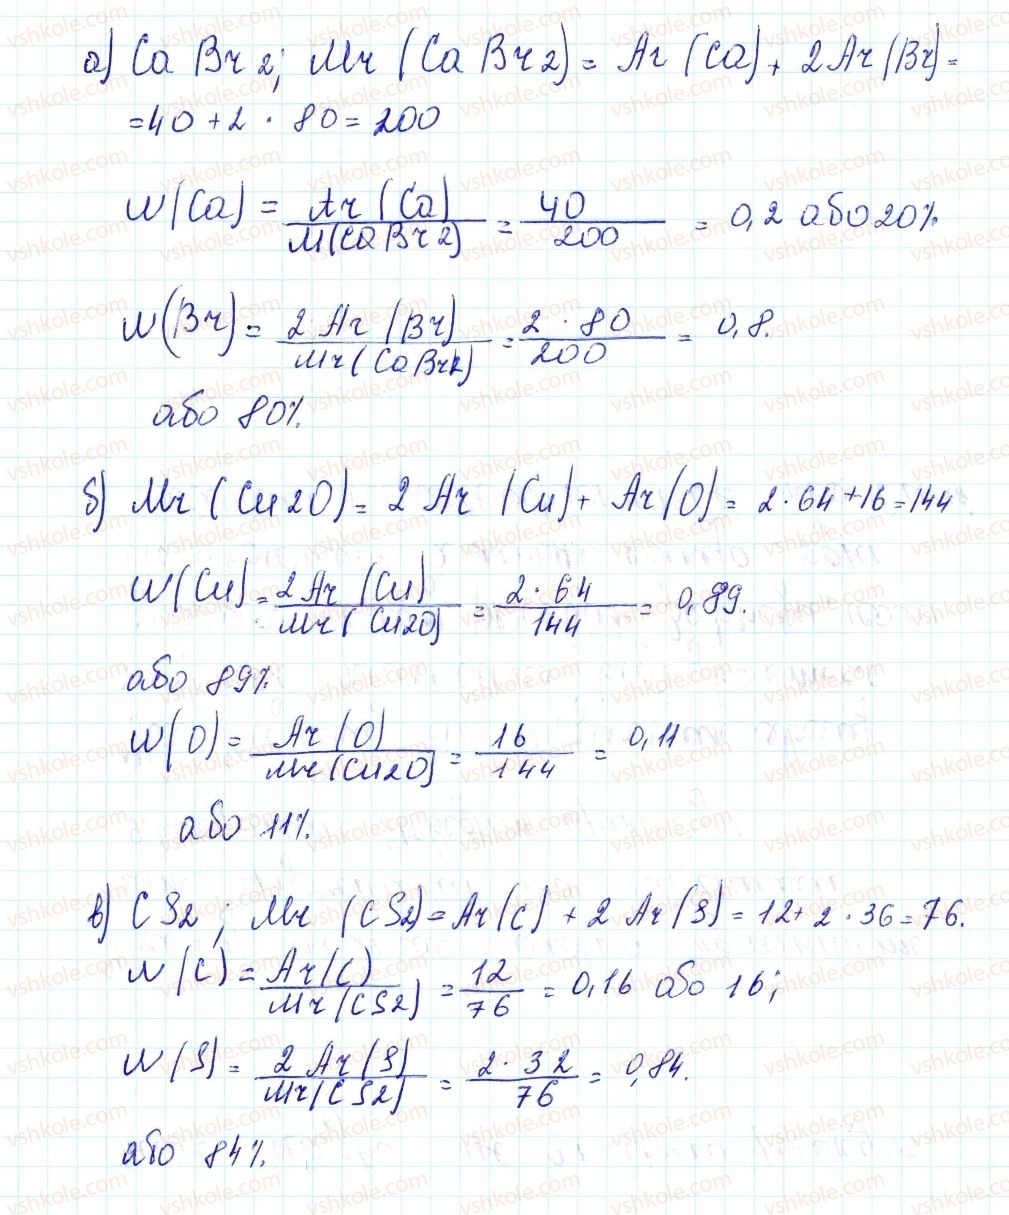 а) CaBr2; Mr(CaBr2) = Ar(Ca) + 2Ar(Br) =
=40+2 · 80=200
W(Ca) = Ar(Ca)/M(CaBr2) = 40/200 = 0,2 або 20%
W(Br) = 2Ar(Br)/Mr(CaBr2) = 2 · 80/200 = 0,8.
або 80%.
б) Mr(Cu2O) = 2Ar(Cu) + Ar(O) = 2·64+16=144
W(Cu) = 2Ar(Cu)/Mr(Cu2O) = 2·64/144 = 0,89.
або 89%
W(O) = Ar(O)/Mr(Cu2O) = 16/144 = 0,11
або 11%.
в) CS2; Mr(CS2) = Ar(C) + 2Ar(S) = 12+2·36=76.
W(C) = Ar(C)/Mr(CS2) = 12/76 = 0,16 або 16;
W(S) = 2Ar(S)/Mr(CS2) = 2·32/76 = 0,84.
або 84%.
vshkole.com